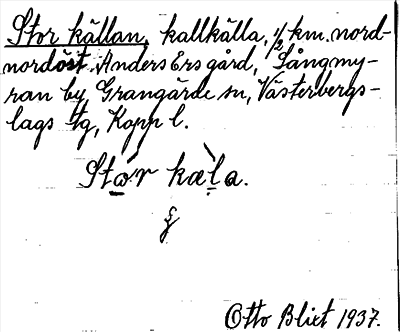 Stor källan, kallkälla, 1/2 km. nord-
nordöst Anders Ers gård, Sångmy-
ran by Grangärde sn, Västerbergs-
lags tg, Kopp l.
Stor kæla.
Otto Blixt 1937.